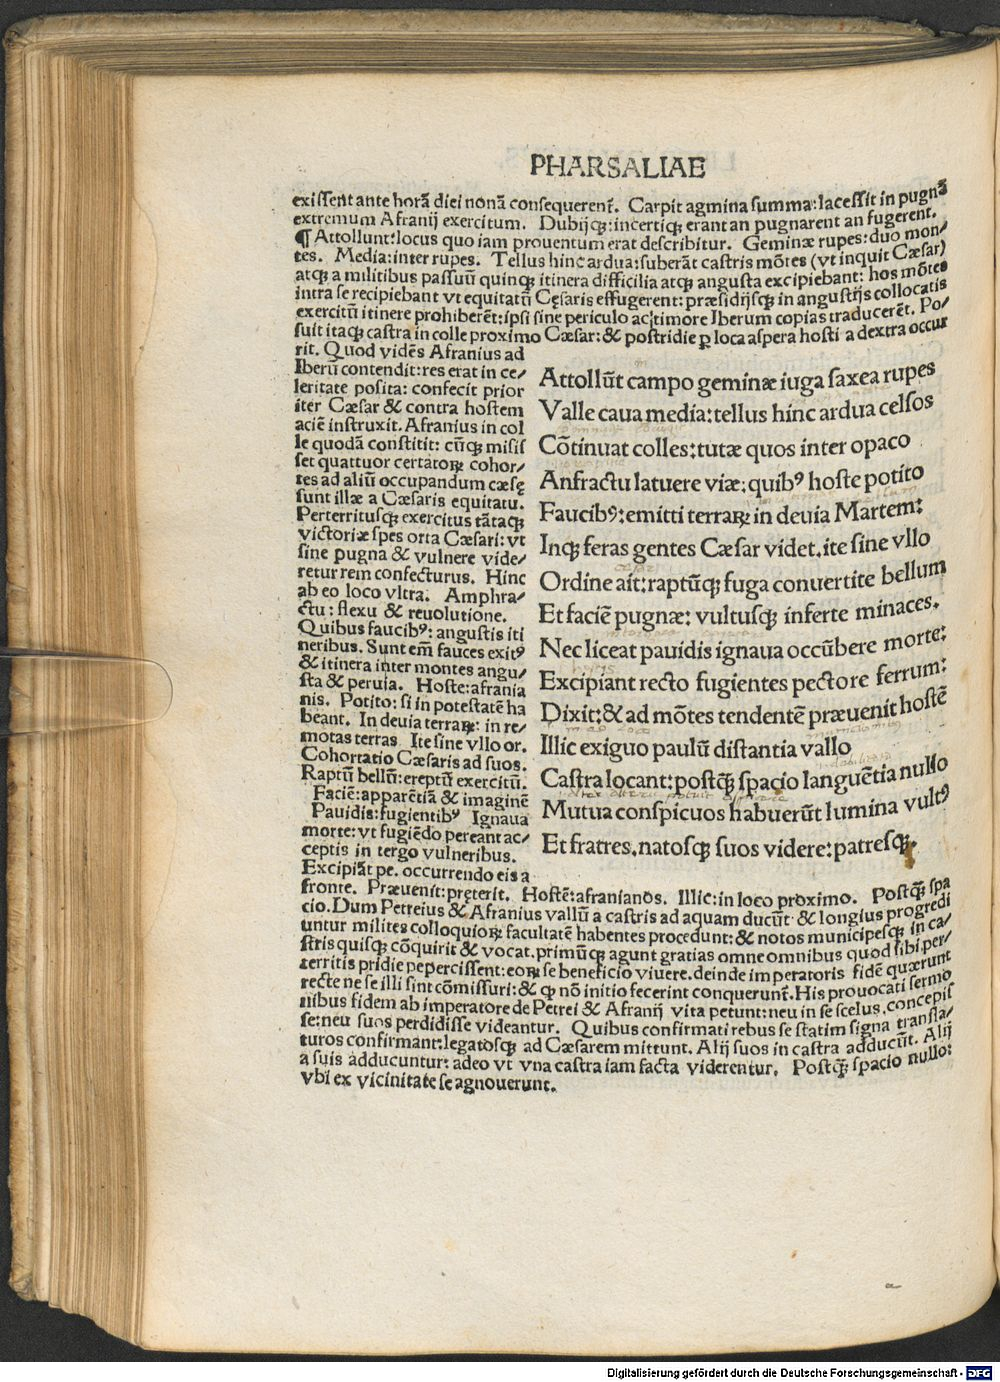 PHARSALIAE
exissent ante horã diei nonã consequerent̃. Carpit agmina summa: lacessit in pugnã
extremum Afranij exercitum. Dubijq̃: incertiq̃ erant an pugnarent an fugerent.
¶ Attollunt: locus quo iam prouentum erat describitur. Geminæ rupes: duo mon/
tes. Media: inter rupes. Tellus hinc ardua: suberãt castris mõtes (vt inquit Cæsar)
atq̃ a militibus passuũ quinq̃ itinera difficilia atq̃ angusta excipiebant: hos mõtes
intra se recipiebant vt equitatũ Cęsaris effugerent: præsidijsq̃ in angustijs collocatis
exercitũ itinere prohiberẽt: ipsi sine periculo ac timore Iberum copias traducerẽt. Po/
suit itaq̃ castra in colle proximo Cæsar: & postridie ꝑ loca aspera hosti a dextra occur
rit. Quod vidẽs Afranius ad
Iberũ contendit: res erat in ce/
leritate posita: confecit prior
iter Cæsar & contra hostem
aciẽ instruxit. Afranius in col
le quodã constitit: cũq̃ misis
set quattuor certatoꝝ cohor/
tes ad aliũ occupandum cæsę
sunt illæ a Cæsaris equitatu.
Perterritusq̃ exercitus tãtaq̃
victoriæ spes orta Cæsari: vt
sine pugna & vulnere vide/
retur rem confecturus. Hinc
ab eo loco vltra. Amphra/
ctu: flexu & reuolutione.
Quibus faucibꝰ: angustis iti
neribus. Sunt em̃ fauces exitꝰ
& itinera inter montes angu/
sta & peruia. Hoste: afrania
nis. Potito: si in potestatẽ ha
beant. In deuia terraꝝ: in re/
motas terras Ite sine vllo or.
Cohortatio Cæsaris ad suos.
Raptũ bellũ: ereptũ exercitũ.
Faciẽ: apparẽtiã & imaginẽ
Pauidis: fugientibꝰ Ignaua
morte: vt fugiẽdo pereant ac/
ceptis in tergo vulneribus.
Excipiãt pe. occurrendo eis a
Attollũt campo geminæ iuga saxea rupes
Valle caua media: tellus hinc ardua celsos
Cõtinuat colles: tutæ quos inter opaco
Anfractu latuere viæ: quibꝰ hoste potito
Faucibꝰ: emitti terraꝝ in deuia Martem:
Inq̃ feras gentes Cæsar videt. ite sine vllo
Ordine ait: raptũq̃ fuga conuertite bellum
Et faciẽ pugnæ: vultusq̃ inferte minaces.
Nec liceat pauidis ignaua occũbere morte:
Excipiant recto fugientes pectore ferrum:
Dixit: & ad mõtes tendentẽ præuenit hostẽ
Illic exiguo paulũ distantia vallo
Castra locant: postq̃ spacio languẽtia nullo
Mutua conspicuos habuerũt lumina vultꝰ
Et fratres. natosq̃ suos videre: patresq̃.
fronte. Præuenit: pręterit. Hostẽ: afranianos. Illic: in loco proximo. Postq̃ spa
cio. Dum Petreius & Afranius vallũ a castris ad aquam ducũt & longius progredi
untur milites colloquioꝝ facultatẽ habentes procedunt: & notos municipesq̃ in ca/
stris quisq̃ cõquirit & vocat. primũq̃ agunt gratias omne omnibus quod sibi per/
territis pridie pepercissent: eoꝝ se beneficio viuere. deinde imperatoris fidẽ quærunt
recte ne se illi sint cõmissuri: & ꝙ nõ initio fecerint conquerunt̃. His prouocati sermo
nibus fidem ab imperatore de Petrei & Afranij vita petunt: neu in se scelus concepis
se: neu suos perdidisse videantur. Quibus confirmati rebus se statim signa transla/
turos confirmant: legatosq̃ ad Cæsarem mittunt. Alij suos in castra adducũt. Alij
a suis adducuntur: adeo vt vna castra iam facta viderentur. Postq̃ spacio nullo:
vbi ex vicinitate se agnouerunt.
Digitalisierung gefördert durch die Deutsche Forschungsgemeinschaft - DFG